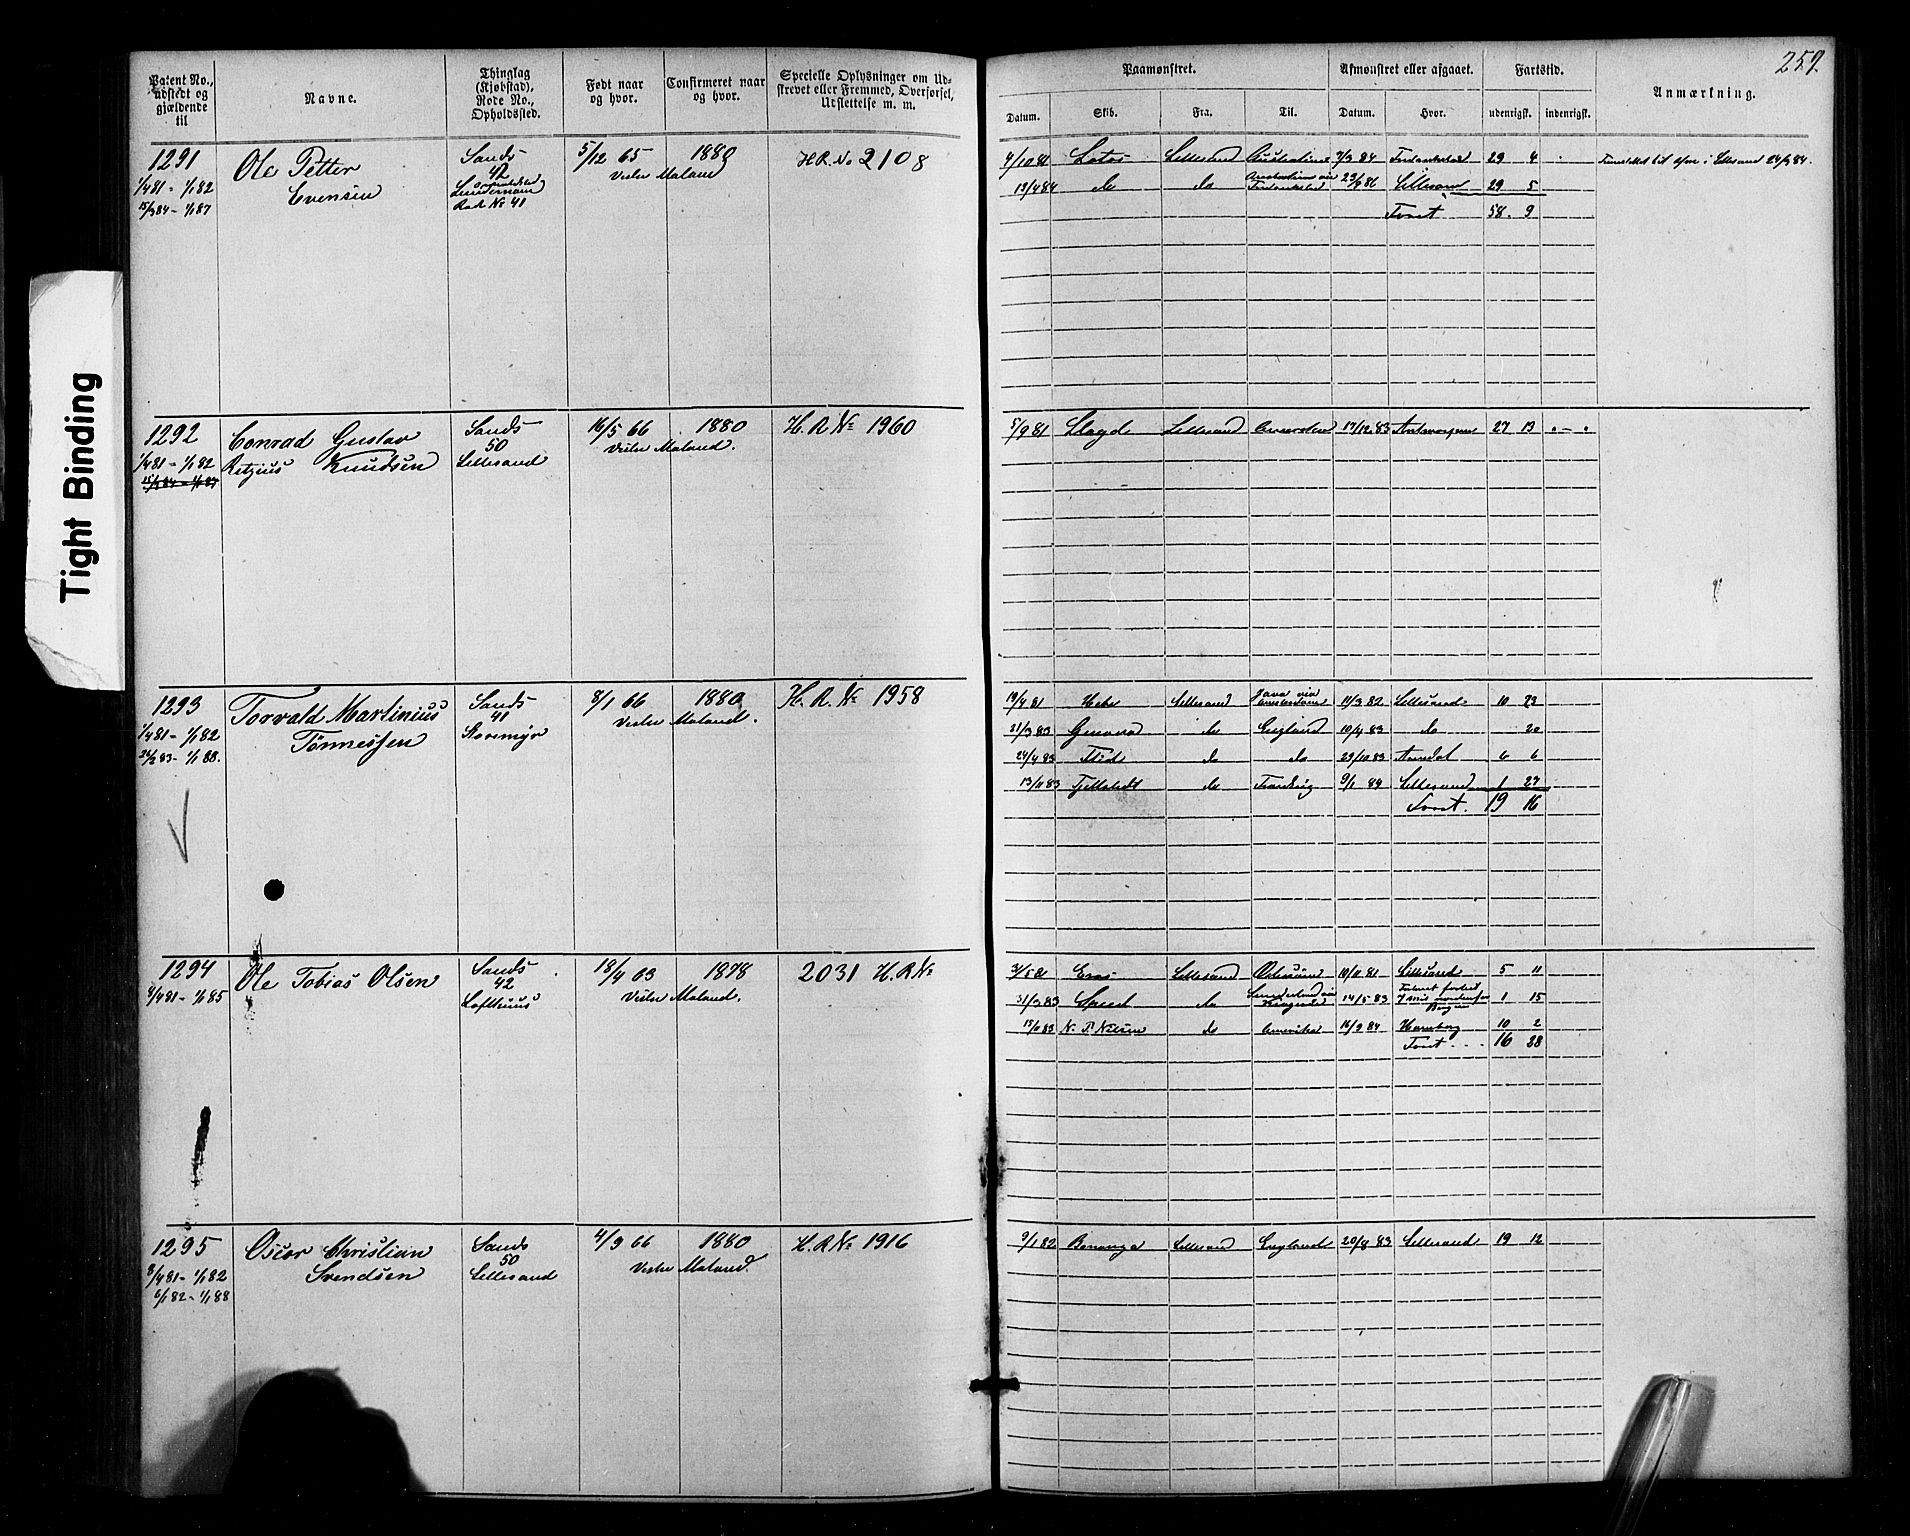 Tight Binding
259.
Patent No., udstedt og gjældende til
Navne.
Thinglag (Kjøbstad), Rode No., Opholdssted.
Født naar og hvor.
Confirmeret naar og hvor.
Specielle Oplysninger om Udskrevet eller Fremmed, Overførsel, Udslettelse m. m.
Paamønstret.
Afmønstret eller afgaaet.
Fartstid.
Anmærkning.
Datum. Skib. Fra. Til. Datum. Hvor. udenrigsk. indenrigsk.
1291
1/4 81 - 1/1 82
15/3 84 - 1/1 87
Ole Petter
Evensen
Sands
42
Rode No 41
5/12 65 1880
Vestre Moland
H.R. No 2108
4/10 81 Lotos Lillesand 7/3 84 29 4
13/4 84 do do 29/9 86 Lillesand 29 5
Tvset 58. 9
1292
1/4 81 - 1/1 82
15/3 84 - 1/1 87
Conrad Gustav
Retzius Knudsen
Sands
50
Lillesand
16/5 66 1880
Vestre Moland.
H. R No 1960
5/9 81 Lloyd Lillesand 17/12 83 Antwerpen 27 13 " - "
1293
1/4 81 - 1/1 82
1/1 88.
Torvald Martinius
Tønnessen
Sands
41
Storemyr
8/1 66 1880
Vestre Moland.
H. R. No 1958
19/4 81 Hebe Lillesand Java via Amsterdam 10/3 82 Lillesand 10 23
21/3 83 do England 10/4 83 do 20
24/4 83 do do 29/10 83 Arendal 6 6
13/11 83 do 9/1 84 Lillesand 1 27
19 16
1294
8/4 81 - 1/1 85
Ole Tobias Olsen
Sands
42
Lofthuus
18/4 63 1878
Vestre Moland.
2031 H.R No
Eros Lillesand Ostersøen 10/11 81 Lillesand 5 11
31/3 83 Speed do 14/5 83 1 15
15/11 83 N. P. Nielsen do Amerika 16/9 84 Hamborg 10 2
16 28
1295
8/4 81 - 1/1 82
6/1 82 - 1/1 88
Oscar Christian
Svendsen
Sands
50
Lillesand
4/3 66 1880
Vestre Moland.
H. R No 1916
9/1 82 Bonanza Lillesand England 20/8 83 Lillesand 19 12